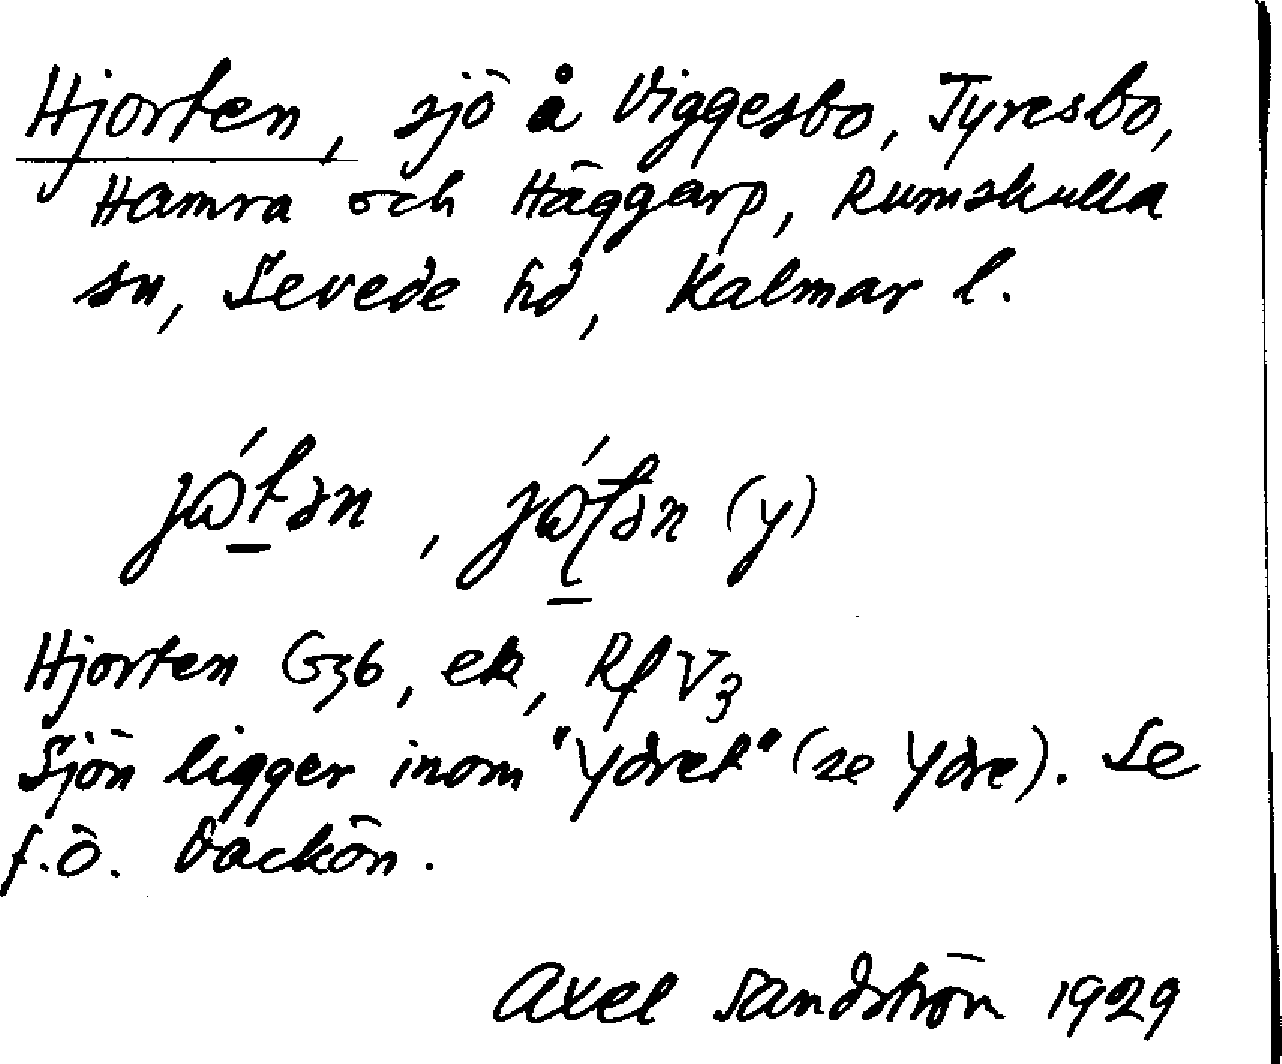 Hjorten, sjö å Viggesbo, Tyresbo,
Hamra och Häggarp, Rumskulla
sn, Sevede hd, Kalmar l.
(y)
Hjorten G36, ek, Rf V3
Sjön ligger inom "Ydret" (se Ydre). Se
f.ö. Vackön.
Axel Sandström 1929